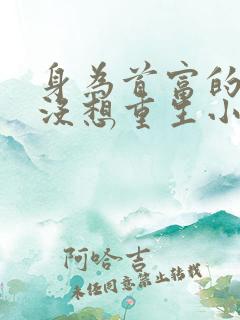 身为首富的
没想重生小
阿哈吉
未经同意禁止转载